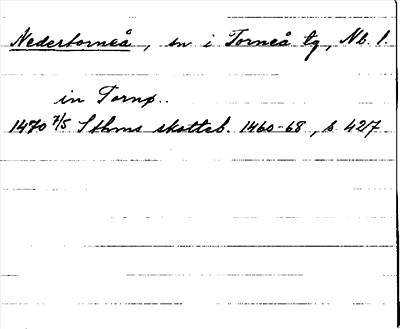 Nedertorneå, sn i Torneå tg, Nb. l.
in Tornø..
1470 7/5 Sthms skotteb. 1460-68, s. 427